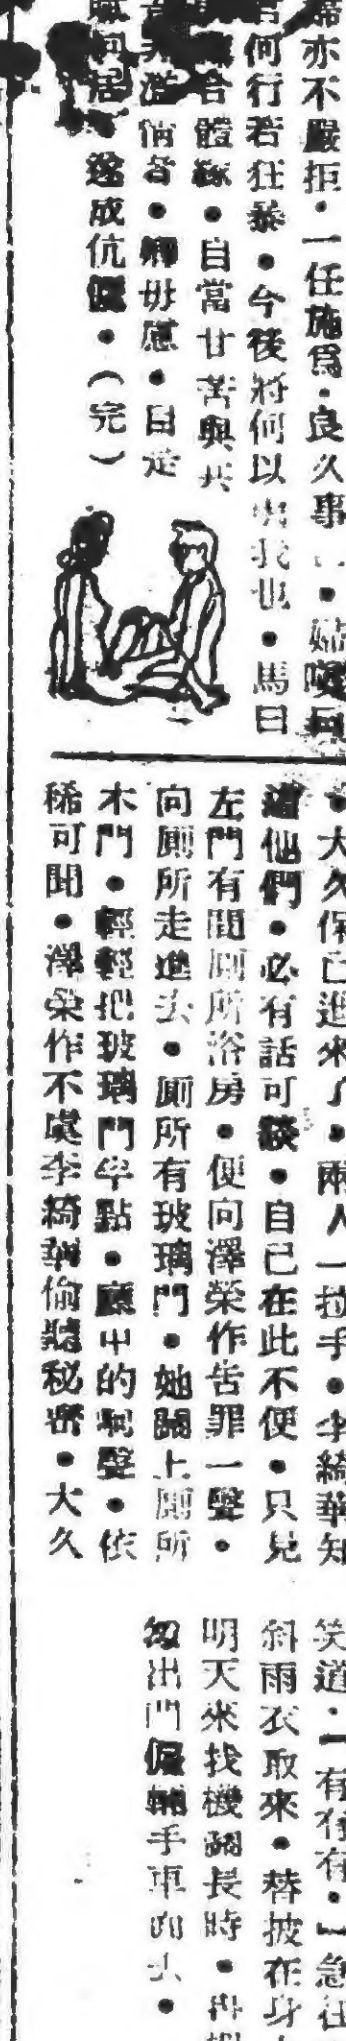 亦不嚴拒・一任施爲・良久事・婦嘆曰
何行若狂暴・今後將何以我也・馬曰
合體緣・自當甘苦與共
倩者・卿毋慮・自是
遂成伉儷・(完)
・大久保已進來了・兩人一拉手・李綺華知
道他們・必有話可談・自己在此不便・只見
左門有間厠所浴房・便向澤榮作告罪一聲・
向厠所走進去・厠所有玻璃門・她關上厠所
木門・輕輕把玻璃門半點・廳中的聲・依
稀可聞・澤榮作不虞李綺華偷聽秘密・大久
笑道・「有有有・」急往
斜雨衣取來・替披在身
明天來找機關長時・再
匆出門僱輛手車而去・